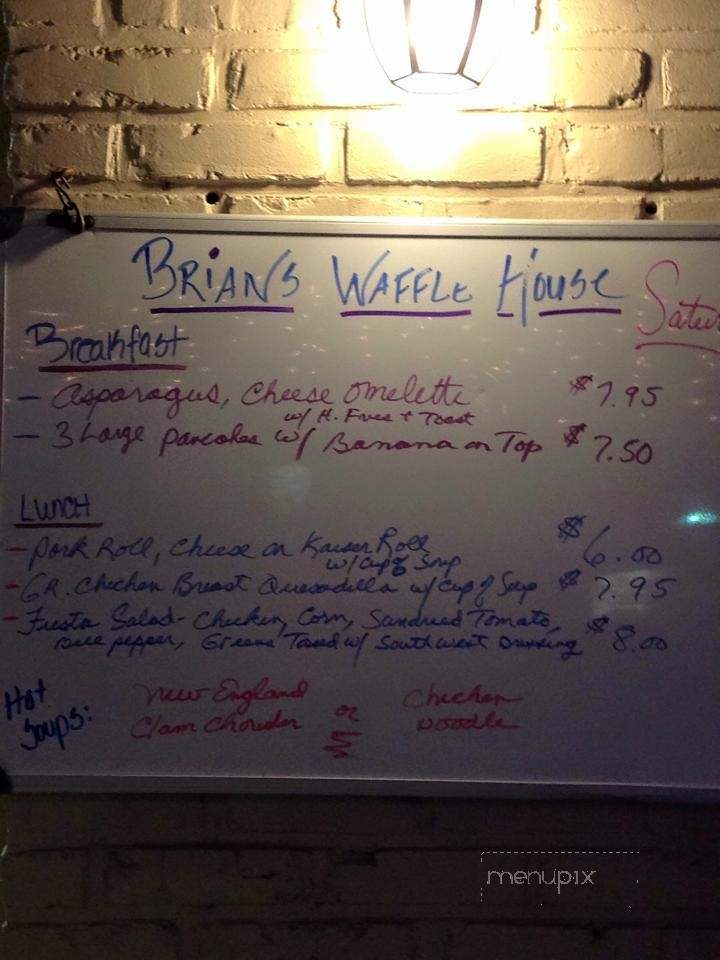 BRiANS WAFFLE HOUSE
Satur
Breakfast
- Asparagus, Cheese Omelette $7.95
w/ H. Fries + Toast
- 3 Large Pancakes w/ Banana on Top $7.50
LUNCH
- Pork Roll, Cheese on Kaiser Roll $6.00
w/ Cup of Soup
- GR. Chicken Breast Quesadilla w/ Cup of Soup $7.95
- Fiesta Salad - Chicken, Corn, Sundried Tomato, $8.00
pepper, Greens Tossed w/ Southwest Dressing
Hot Soups: New England Clam Chowder or Chicken Noodle
menupix